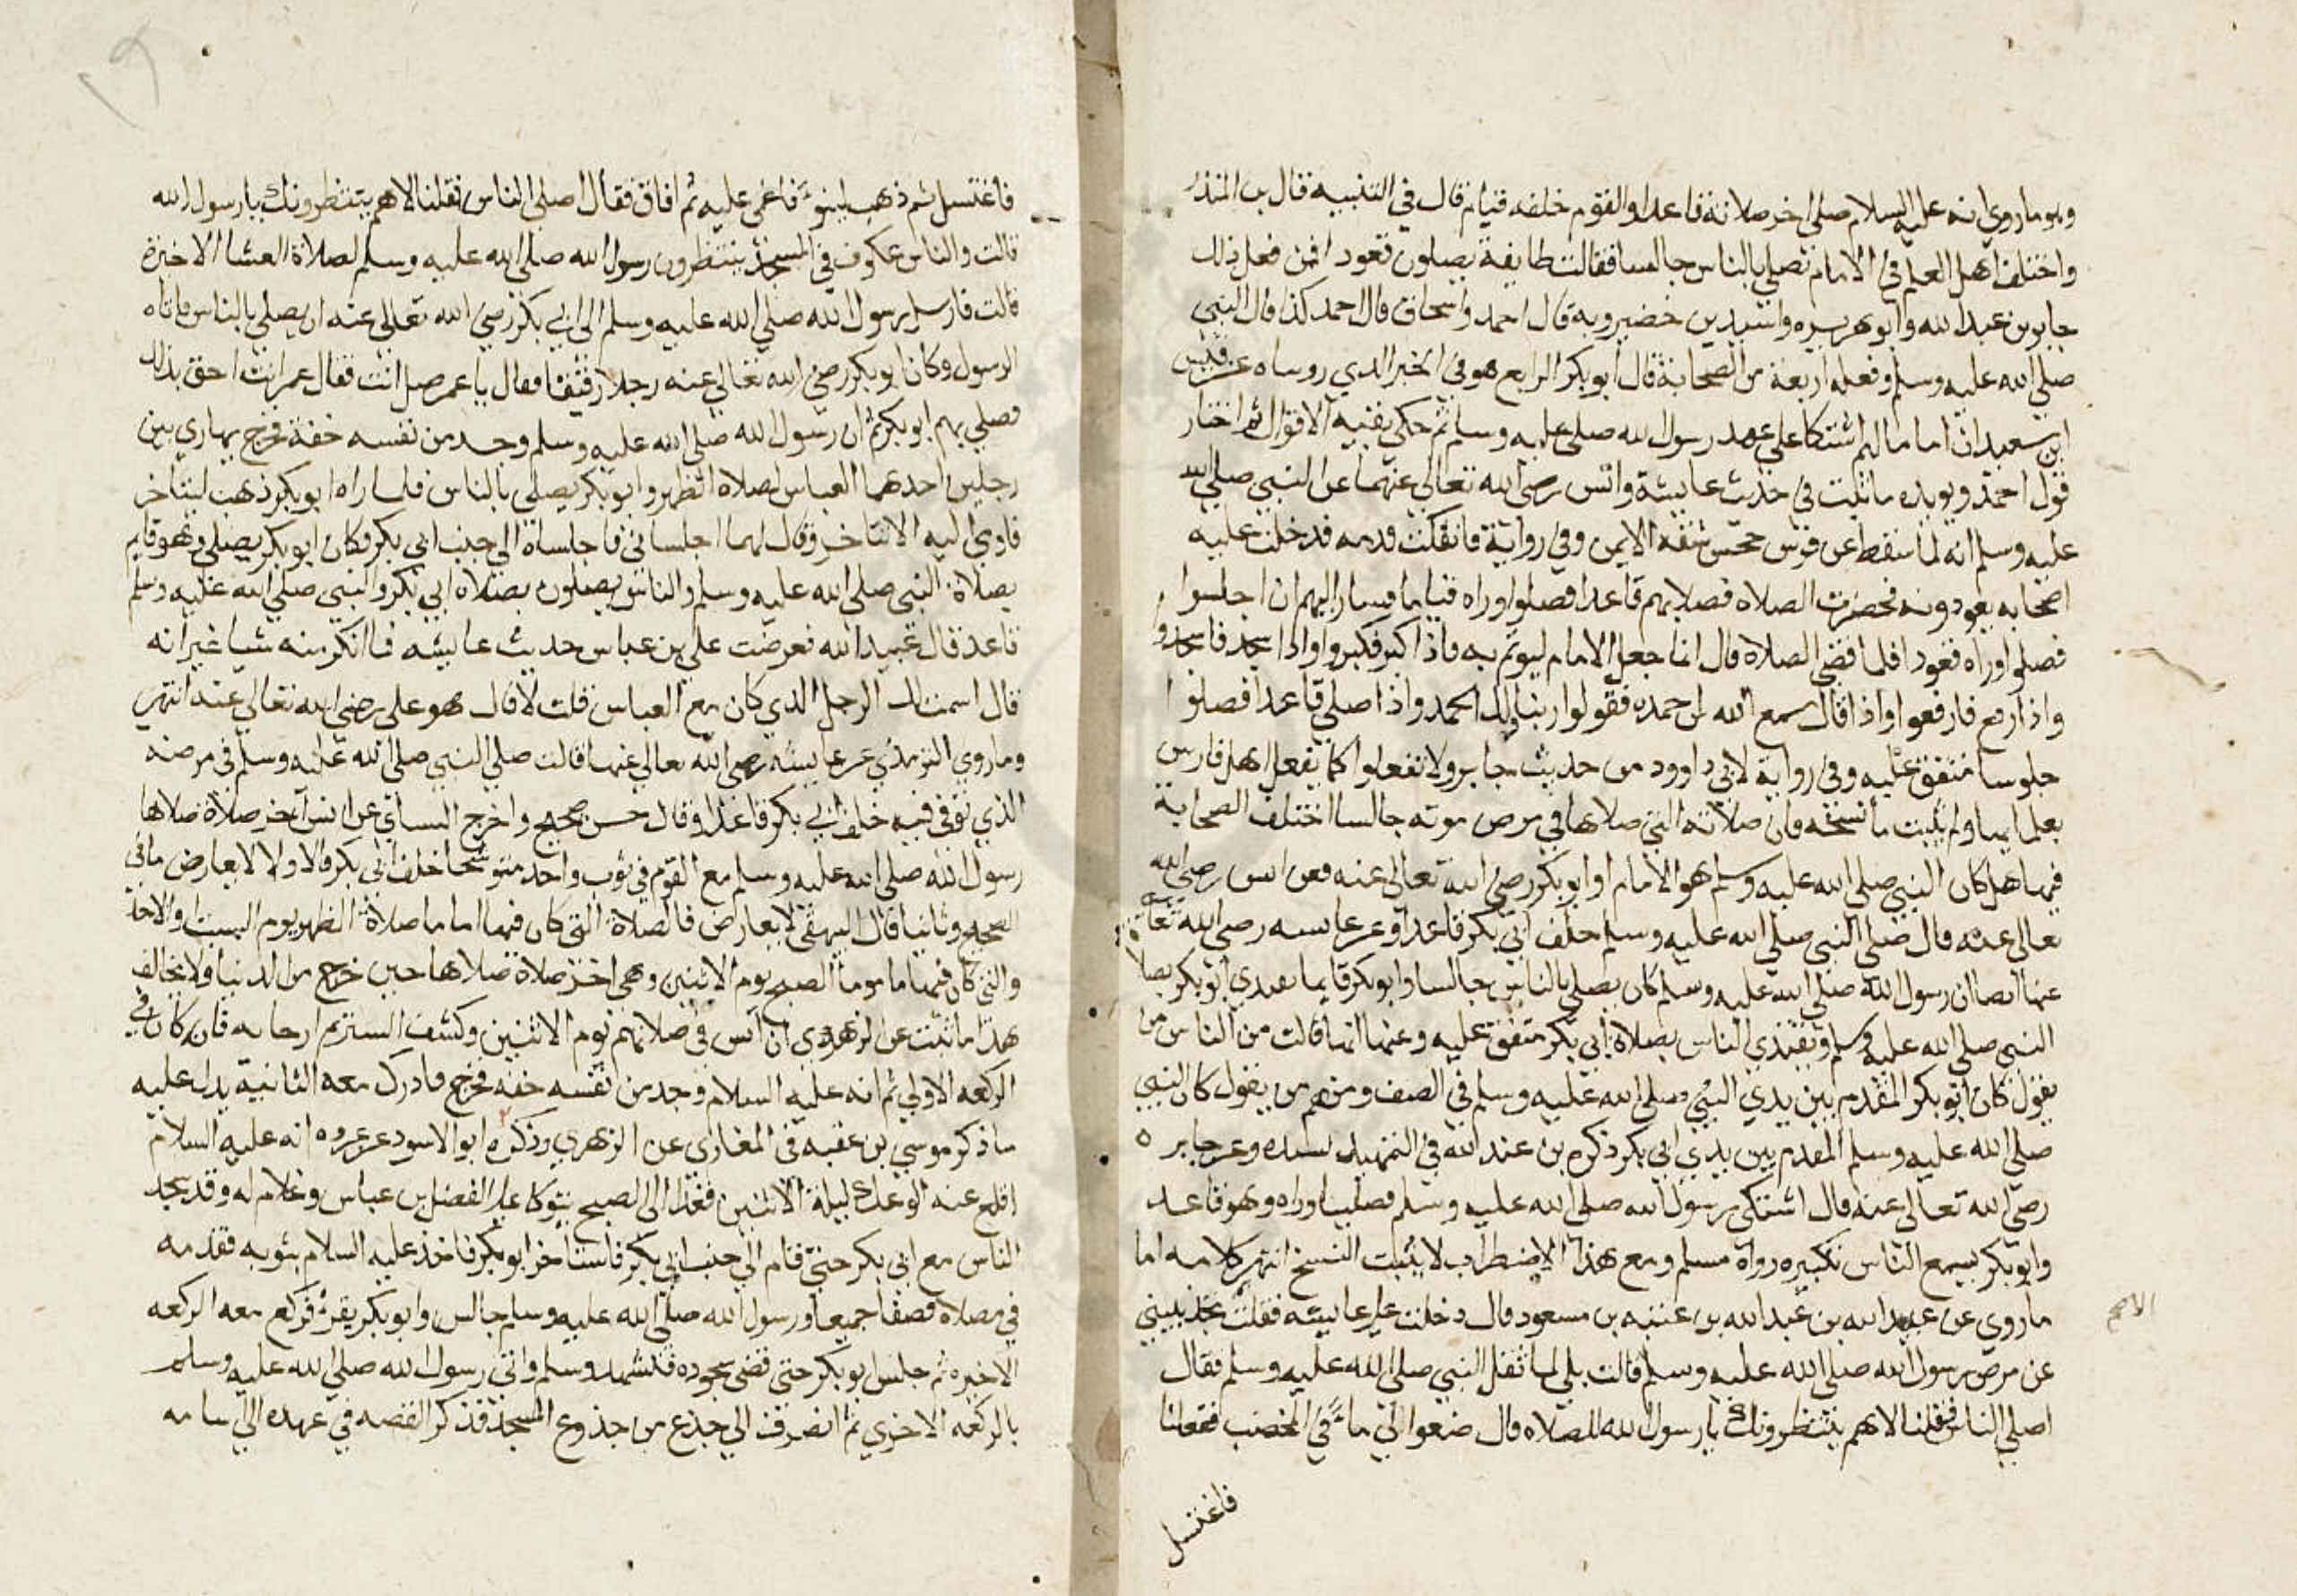 وهو ما روي انه عليه السلام صلى اخر صلاته قاعدا والقوم خلفه قيام قال في التنبيه قال بن المنذر
واختلف اهل العلم في الامام يصلي بالناس جالسا فقالت طايفة يصلون قعود افمن فعل ذلك
جابر بن عبد الله وابو هريره واسيد بن خضير وبه قال احمد واسحاق قال احمد كذا قال النبي
صلي الله عليه وسلم وفعله اربعة من الصحابة قال ابو بكر الرابع هو في الخبر الذي رويناه عن قيس
ابن سعيد ان اماما لهم اشتكا علي عهد رسول الله صلى عليه وسلم ثم حكي بقية الاقوال ثم اختار
قول احمد ويويده ما ثبت في حديث عايشة وانس رضي الله تعالي عنهما عن النبي صلي الله
عليه وسلم انه لما سقط عن فرس جحش شقه الايمن وفي رواية فانفكت قدمه فدخلت عليه
اصحابه يعودونه فحضرت الصلاه فصلا بهم قاعدا فصلوا وراه قياما فاشار اليهم ان اجلسوا
فصلوا وراه قعود افلما قضي الصلاة قال انما جعل الامام ليوتم به فاذا كبر فكبروا واذا سجد فاسجدوا
واذا رفع فارفعوا واذا قال سمع الله لمن حمده فقولوا ربنا ولك الحمد واذا صلي قاعدا فصلوا
جلوسا متفق عليه وفي رواية لابي داوود من حديث جابر ولا تفعلوا كما يفعل اهل فارس
بعظمايها ولم يثبت ما نسخه فان صلاته التي صلاها في مرض موته جالسا اختلف الصحابة
فيها هل كان النبي صلي الله عليه وسلم هو الامام او ابو بكر رضي الله تعالى عنه فعن انس رضي الله
تعالى عنه قال صلى النبي صلي الله عليه وسلم خلف ابي بكر قاعدا وعن عايشه رضي الله تعالى
عنها ايضا ان رسول الله صلي الله عليه وسلم كان يصلي بالناس جالسا وابو بكر قايما يقتدي ابو بكر بصلاة
النبي صلي الله عليه وسلم وتقتدي الناس بصلاة ابي بكر متفق عليه وعنها انها قالت من الناس من
يقول كان ابو بكر المقدم بين يدي النبي صلى الله عليه وسلم في الصف ومنهم من يقول كان النبي
صلي الله عليه وسلم المقدم بين يدي ابي بكر ذكره بن عبد الله في التمهيد بسنده وعن جابر ه
رضي الله تعالى عنه قال اشتكى رسول الله صلى الله عليه وسلم فصلينا وراه وهو قاعد
وابو بكر يسمع الناس تكبيره رواه مسلم ومع هذا الاضطراب لا يثبت النسخ انتهى كلامه اما
ما روي عن عبيد الله بن عبد الله بن عتبه بن مسعود قال دخلت علي عايشه فقلت تحديثيني
عن مرض رسول الله صلي الله عليه وسلم قالت بلي لما ثقل النبي صلي الله عليه وسلم فقال
اصلي الناس فقلنا لا هم ينتظرونك يا رسول الله للصلاه قال ضعوا الي ماء في المخضب ففعلنا
فاغتسل
فاغتسل ثم ذهب لينوء فاغمي عليه ثم افاق فقال اصلي الناس فقلنا لا هم ينتظرونك يا رسول الله
قالت والناس عكوف في المسجد ينتظرون رسول الله صلي الله عليه وسلم لصلاة العشا الاخيرة
قالت فارسل رسول الله صلي الله عليه وسلم الى ابي بكر رضي الله تعالى عنه ان يصلي بالناس فاتاه
الرسول وكان ابو بكر رضي الله تعالي عنه رجلا رقيقا فقال يا عمر صل انت فقال عمر انت احق بذلك
فصلي بهم ابو بكر ثم ان رسول الله صلي الله عليه وسلم وجد من نفسه خفة فخرج يهادي بين
رجلين احدهما العباس لصلاه الظهر وابو بكر يصلي بالناس فلما راه ابو بكر ذهب ليتاخر
فاومي اليه الا تتاخر وقال لهما اجلساني فاجلساه الي جنب ابي بكر فكان ابو بكر يصلي وهو قايم
بصلاة النبي صلي الله عليه وسلم والناس يصلون بصلاه ابي بكر والنبي صلي الله عليه وسلم
قاعد قال عبيد الله فعرضت علي بن عباس حديث عايشه فما انكر منه شيا غير انه
قال اسمت لك الرجل الذي كان مع العباس قلت لا قال هو علي رضي الله تعالي عنه انتهى
وما روي الترمذي عن عايشه رضي الله تعالي عنها قالت صلي النبي صلي الله عليه وسلم في مرضه
الذي توفي فيه خلف ابي بكر قاعدا وقال حسن صحيح واخرج النساي عن انس آخر صلاة صلاها
رسول الله صلى الله عليه وسلم مع القوم في ثوب واحد متوشحا خلف ابي بكر فالاولا لا يعارض ما في
الصحيح وثانيا قال البيهقي لا يعارض فالصلاة التي كان فيها اماما صلاة الظهر يوم السبت والاحد
والتي كان فيها ماموما الصبح يوم الاثنين وهي اخر صلاة صلاها حين خرج من الدنيا ولا يخالف
هذا ما ثبت عن الزهري ان انس في صلاتهم يوم الاثنين وكشف الستر ثم ارخايه فان كان في
الركعه الاولي ثم انه عليه السلام وجد من نفسه خفه فخرج فادرك معه الثانية يدل عليه
ما ذكر موسي بن عقبه في المغازي عن الزهري وذكره ابو الاسود عن عروه انه عليه السلام
اقلع عنه الوعك ليلة الاثنين فغدا الى الصبح يتوكا علي الفضل بن عباس وغلام له وقد سجد
الناس مع ابي بكر حتي قام الي جنب ابي بكر فاستاخر ابو بكر فاخذ عليه السلام بثوبه فقدمه
في مصلاه فصفا جميعا ورسول الله صلي الله عليه وسلم جالس وابو بكر يقرء فركع معه الركعه
الاخيره ثم جلس ابو بكر حتي قضى سجوده فتشهد وسلم واتي رسول الله صلي الله عليه وسلم
بالركعه الاخري ثم انصرف الي جذع من جذوع المسجد فذكر القصه في عهده الي اسامه